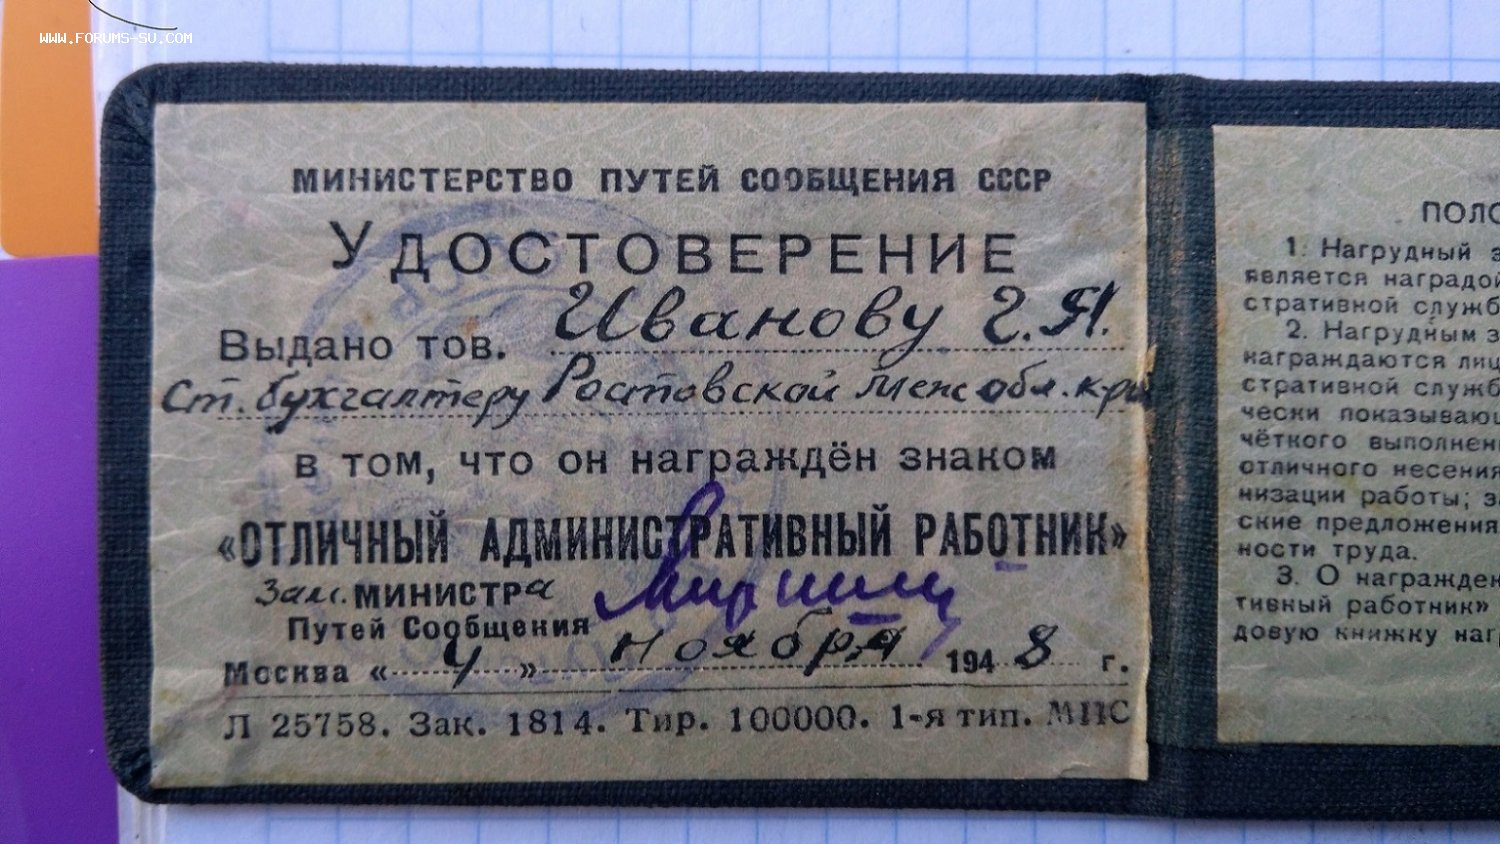 WWW.FORUMS-SU.COM
МИНИСТЕРСТВО ПУТЕЙ СООБЩЕНИЯ СССР
УДОСТОВЕРЕНИЕ
Выдано тов. Иванову Г.Я.
Ст. бухгалтеру Ростовской Меж обл. к-ры
в том, что он награждён знаком
«ОТЛИЧНЫЙ АДМИНИСТРАТИВНЫЙ РАБОТНИК»
Зам. МИНИСТРА
Путей Сообщения
Москва «4» ноября 1948 г.
Л 25758. Зак. 1814. Тир. 100000. 1-я тип. МПС
ПОЛО
1. Нагрудный з
является наградой
стративной служб
2. Нагрудным з
награждаются лиц
стративной служб
чески показывающ
чёткого выполнен
отличного несения
низации работы; за
ские предложения
ности труда.
3. О награжден
тивный работник»
довую книжку наг